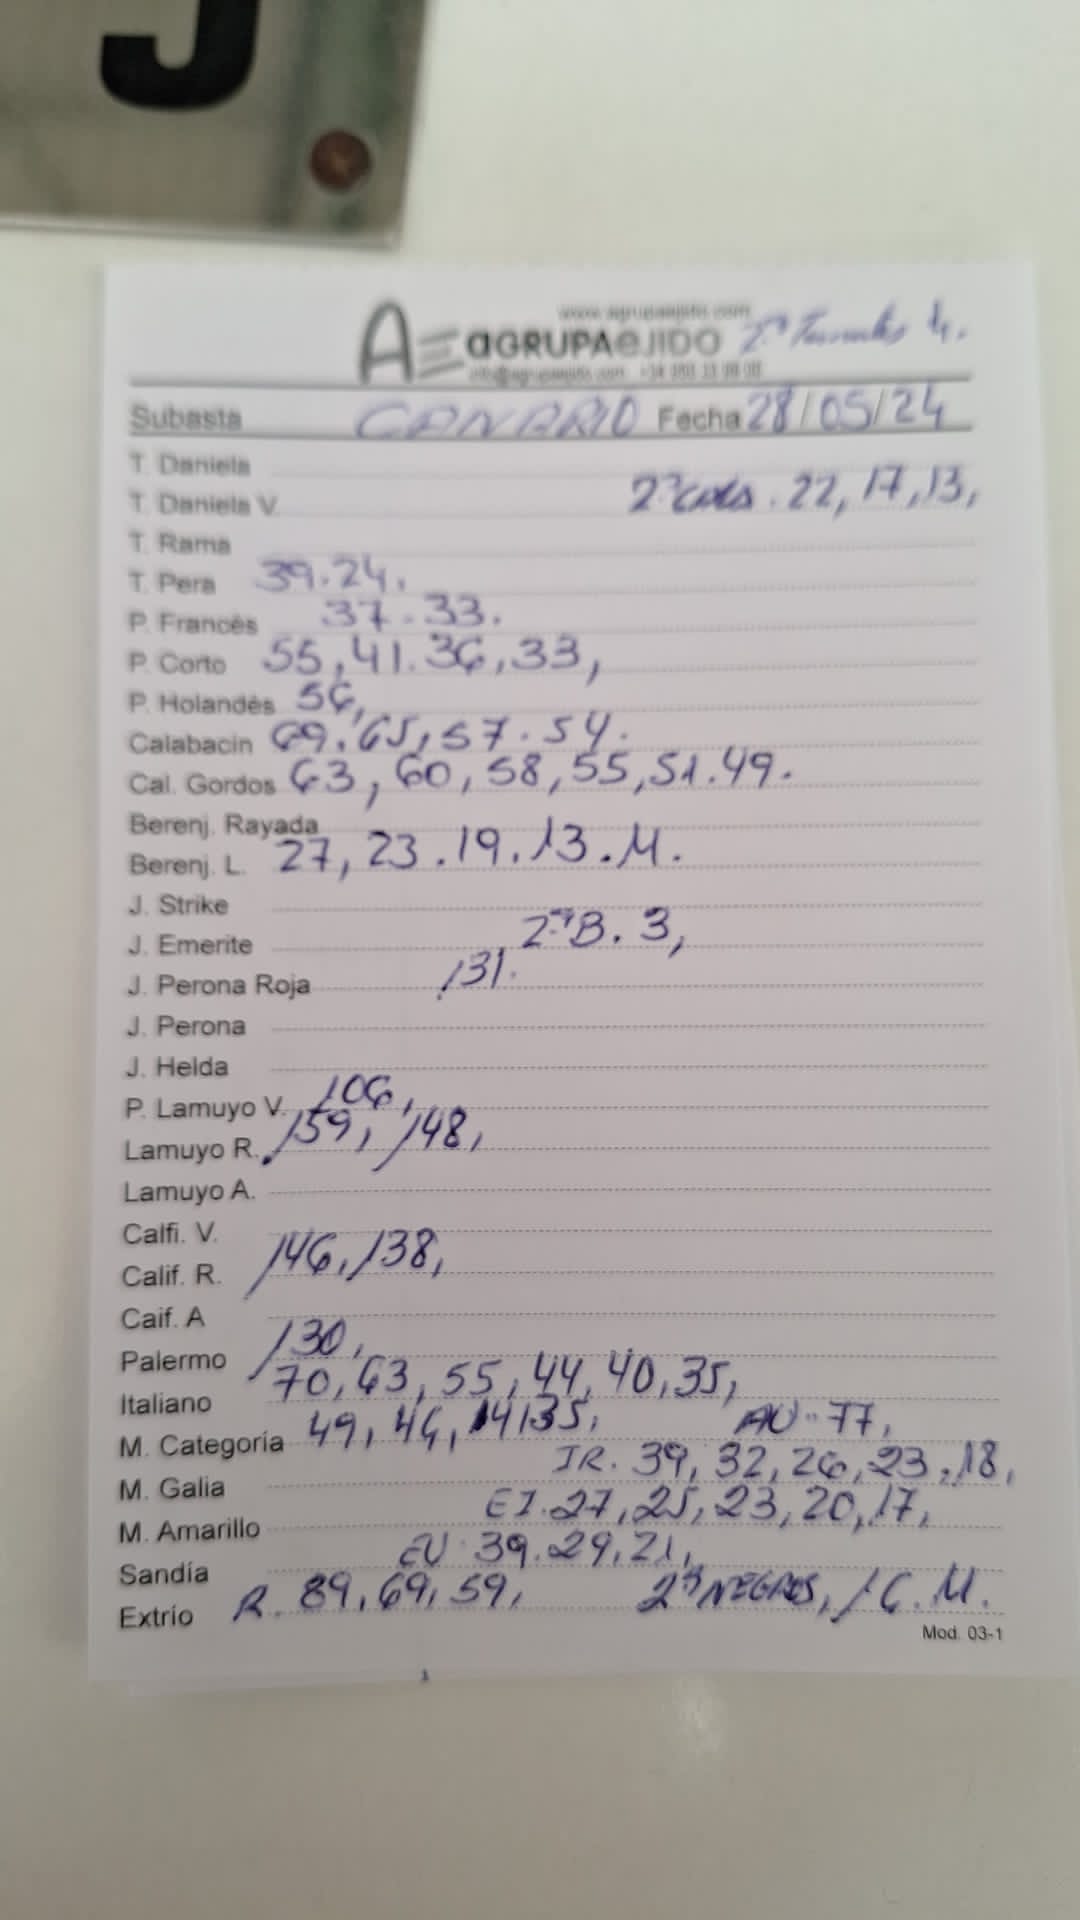 J
www.agrupaejido.com
AE aGRUPAéJIDO 2ª 4.
Subasta CANARIO Fecha 28/05/24
T. Daniela
T. Daniela V. 2ª 22, 17, 13,
T. Rama
T. Pera 39.24.
P. Francés 37.33.
P. Corto 55, 41.36, 33,
P. Holandés 56,
Calabacin 69. 65, 57. 54.
Cal. Gordos 63, 60, 58, 55, 51. 49.
Berenj. Rayada
Berenj. L. 27, 23. 19. 13. 11.
J. Strike
J. Emerite 2ª B. 3,
J. Perona Roja 131.
J. Perona
J. Helda
P. Lamuyo V. 106,
Lamuyo R. 159, 148,
Lamuyo A.
Calfi. V.
Calif. R. 146, 138,
Caif. A
Palermo 130,
Italiano 70, 63, 55, 44, 40, 35,
M. Categoría 49, 46, 35, AU.. 77,
M. Galia IR. 39, 32, 26, 23, 18,
M. Amarillo EI. 27, 25, 23, 20, 17,
Sandía EU. 39. 29, 21,
Extrio R. 89, 69, 59, 2ª NEGRAS, 16. 11.
Mod. 03-1